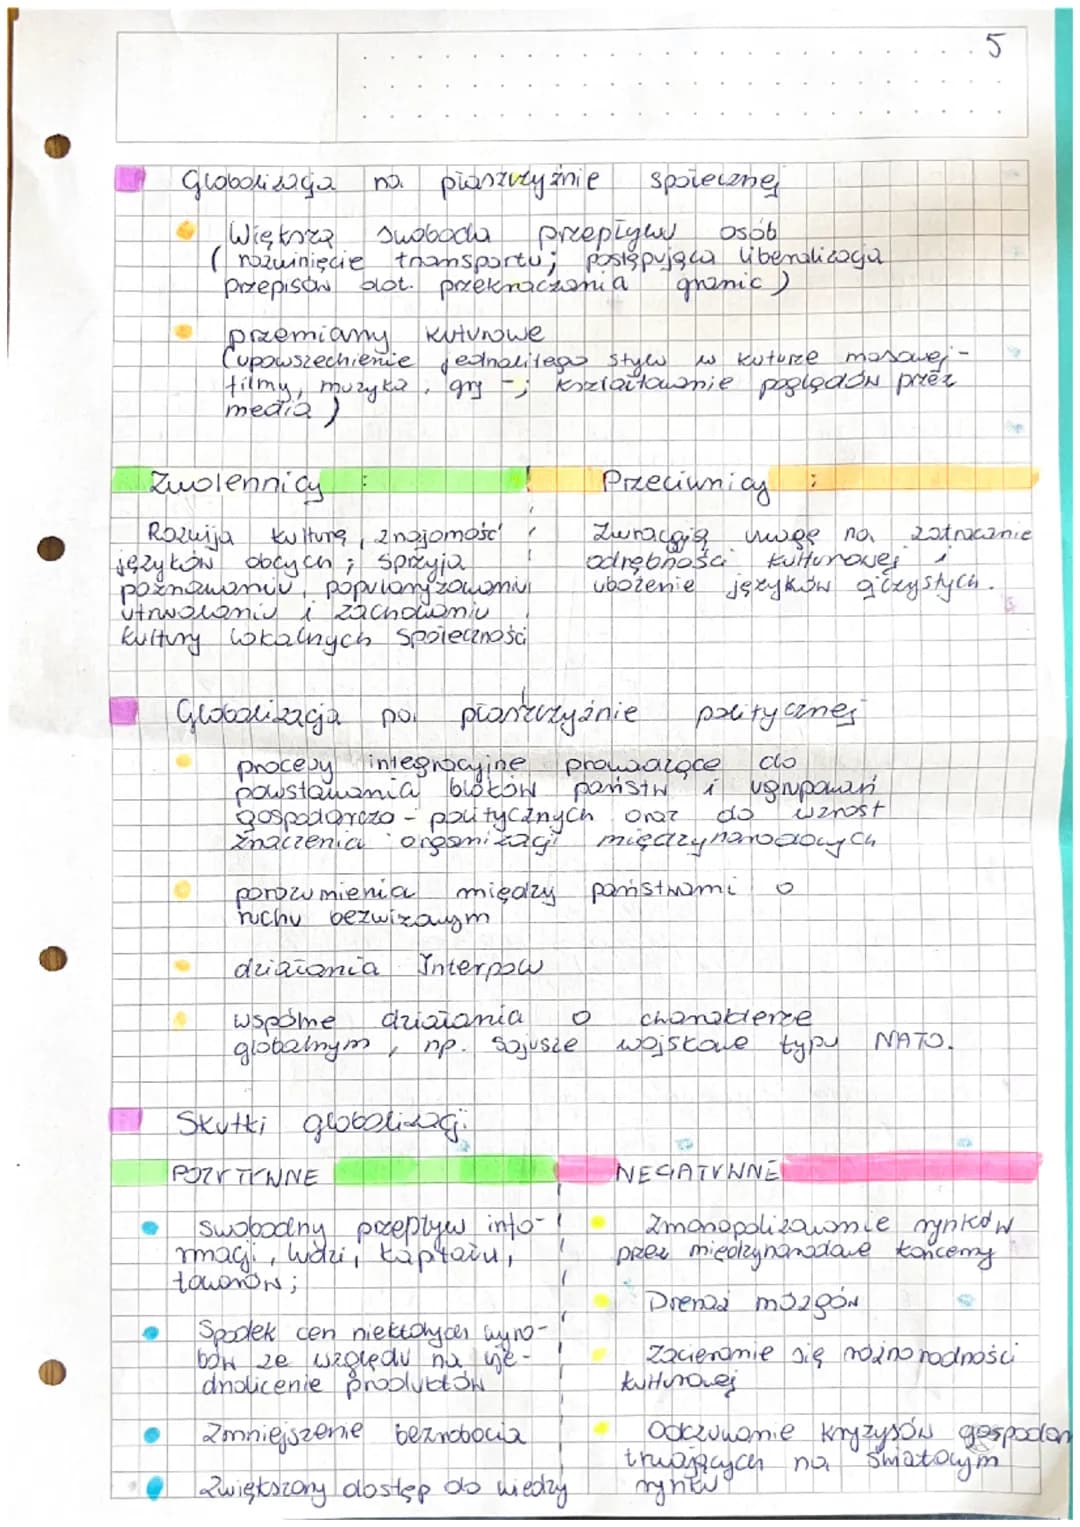 5
Globalizacja na płaszczyźnie społecznej
Większa swoboda przepływu osób
( rozwinięcie transportu; postępująca liberalizacja
przepisów dot. przekraczania granic )
przemiany kuturowe
(upowszechienie jednolitego stylu w kuturze masowej -
filmy, muzyka, gry -; kształtowanie poglądów przez
media )
Zwolennicy :
Przeciwnicy :
Rozwija kulturę, znajomość
języków obcych; sprzyja
poznawaniu, popularyzowaniu
utrwalaniu i zachowaniu
kultury lokalnych społeczności
Zwracają uwagę na zatracanie
odrębności kulturowej i
ubożenie języków ojczystych.
Globalizacja na płaszczyźnie politycznej
procesy integracyjne prowadzące do
powstawania bloków państw i ugrupowań
gospodarczo - politycznych oraz do wzrost
znaczenia organizacji międzynarodowych
porozumienia między państwami o
ruchu bezwizowym
działania Interpolu
wspólne działania o charakterze
globalnym, np. sojusze wojskowe typu NATO.
Skutki globalizacji
POZYTYWNE
NEGATYWNE
Swobodny przepływ info-
rmacji, ludzi, kapitału,
towarów;
Spadek cen niektórych wyro-
bów ze względu na uje-
dnolicenie produktów
Zmniejszenie bezrobocia
Zwiększony dostęp do wiedzy
Zmonopolizowanie rynków
przez międzynarodowe koncerny
Drenaż mózgów
Zacieranie się różnorodności
kulturowej
Odczuwanie kryzysów gospodar
trwających na światowym
rynku